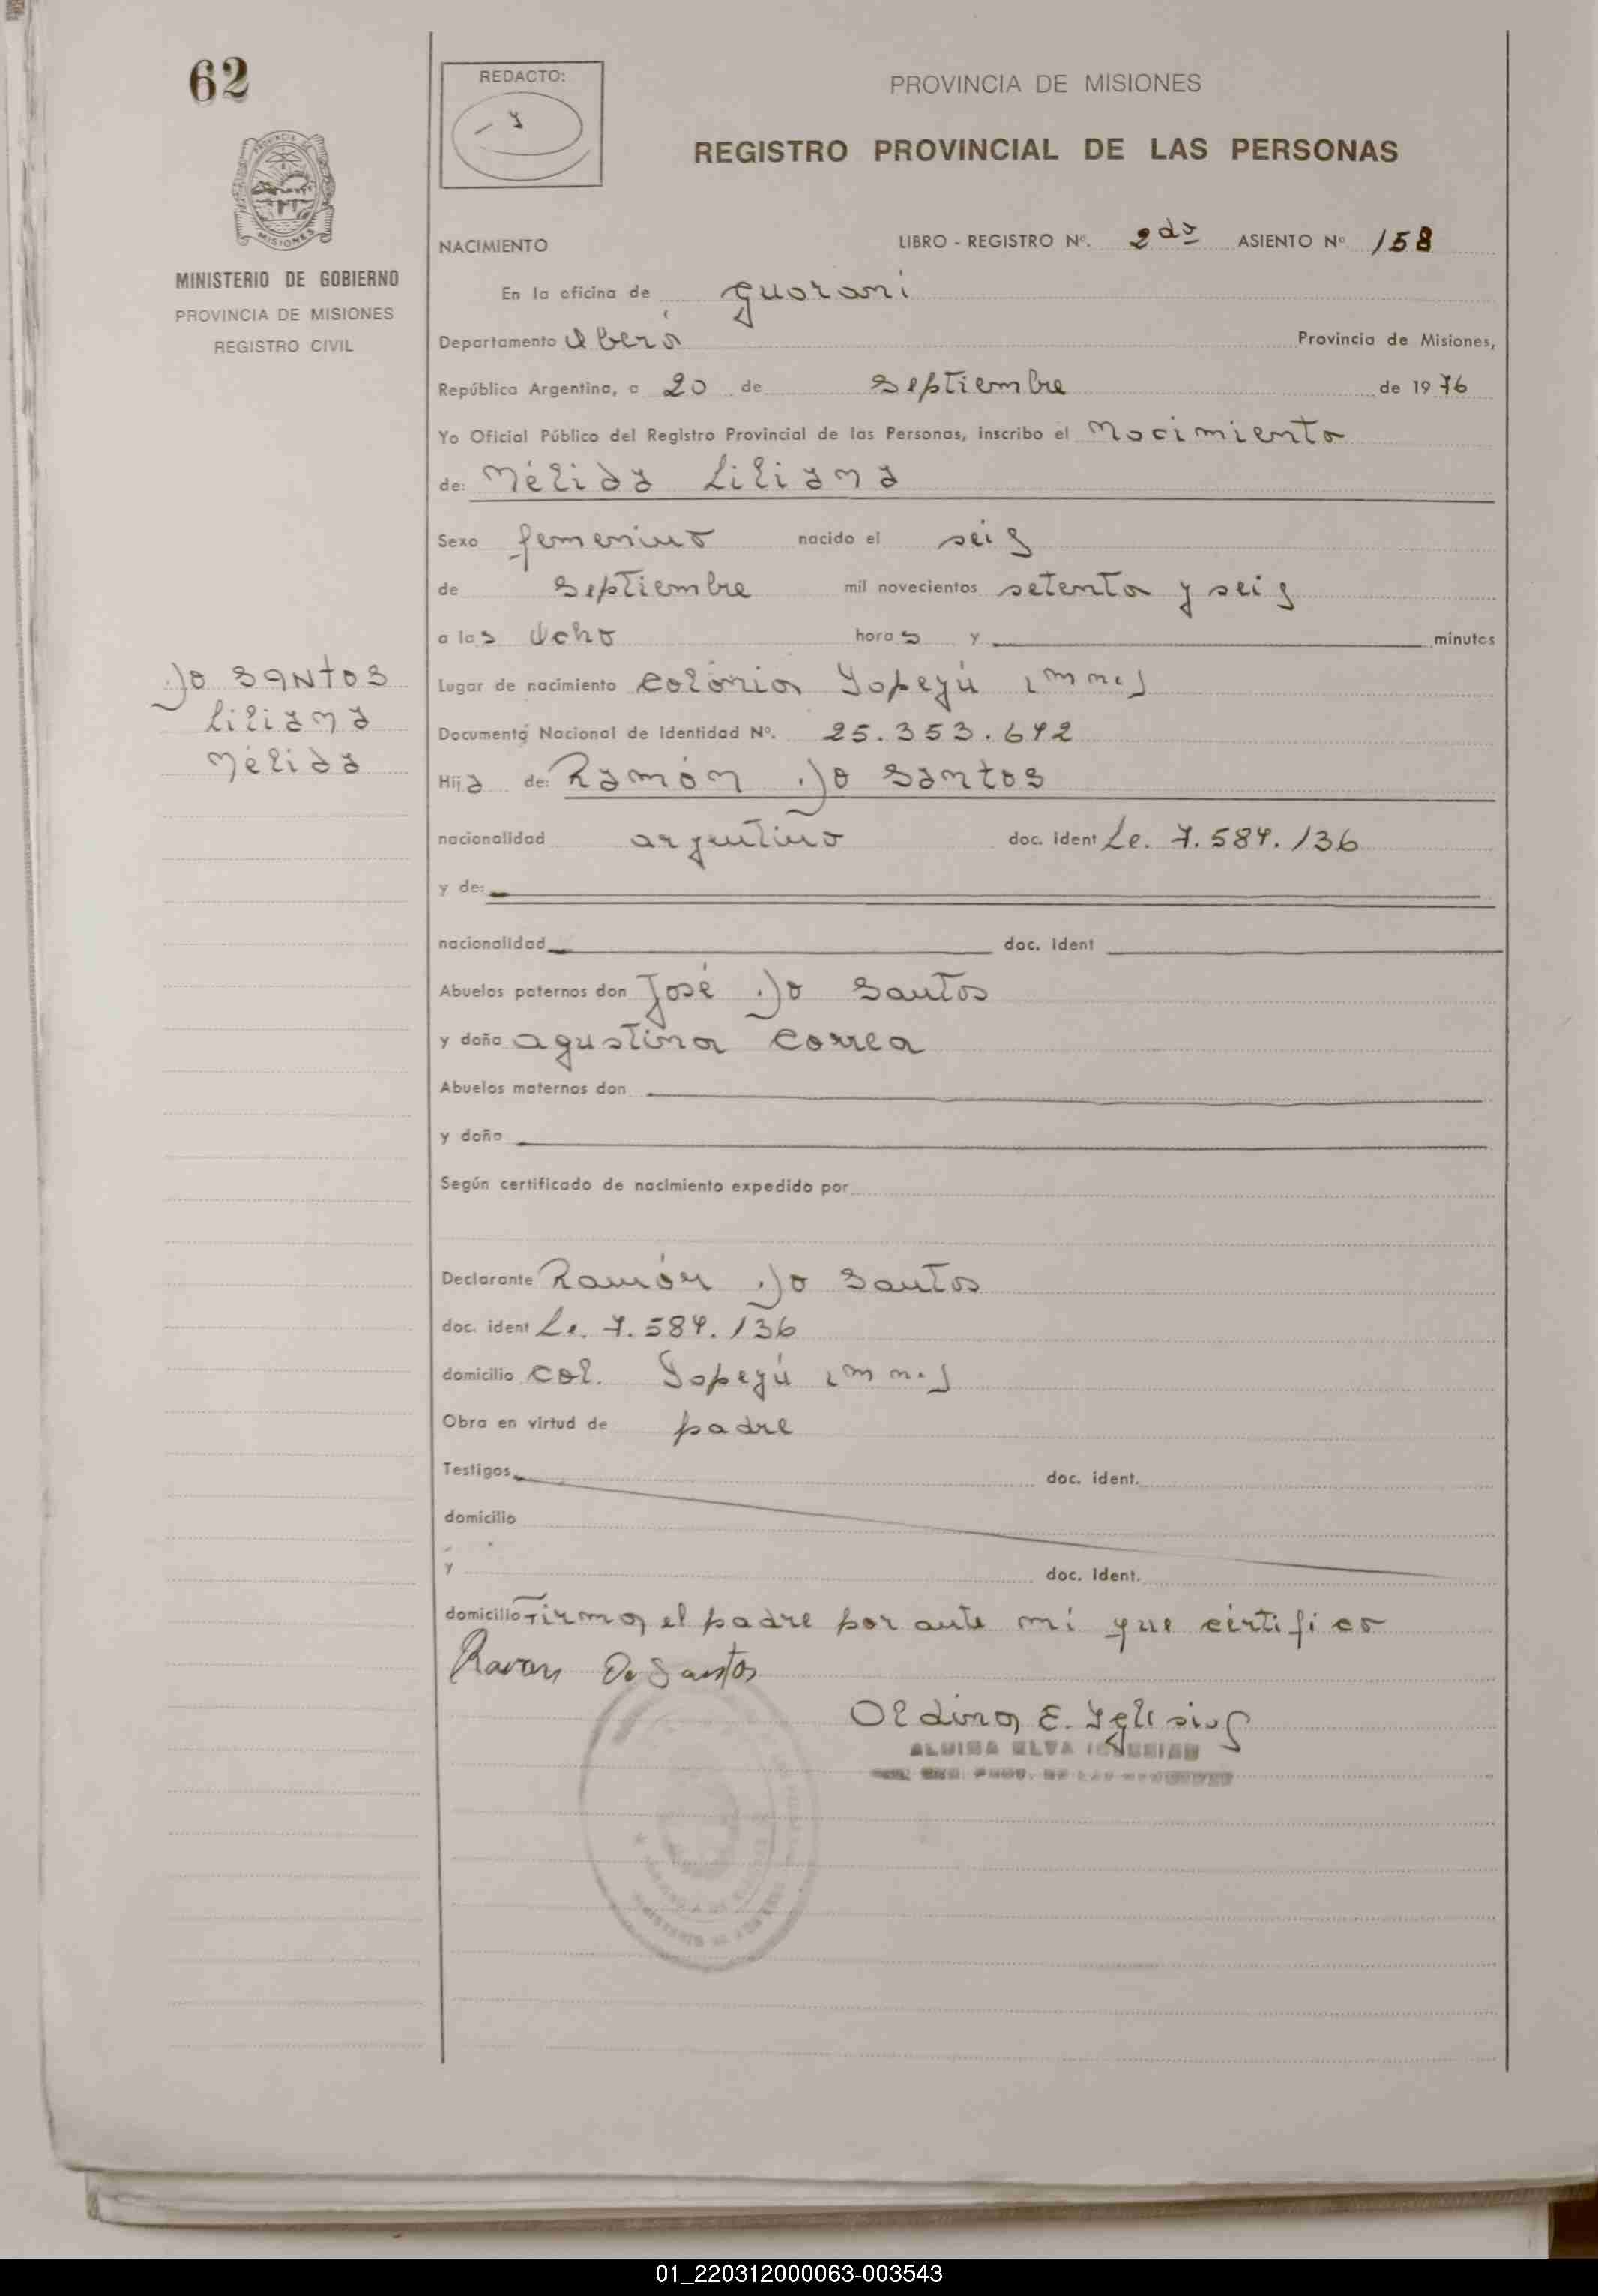 62
REDACTO:
PROVINCIA DE MISIONES
REGISTRO PROVINCIAL DE LAS PERSONAS
PROVINCIA DE
MISIONES
MINISTERIO DE GOBIERNO
PROVINCIA DE MISIONES
REGISTRO CIVIL
NACIMIENTO
LIBRO - REGISTRO Nº. 2do ASIENTO Nº 158
En la oficina de Guarani
Departamento Oberá Provincia de Misiones,
República Argentina, a 20 de Septiembre de 1976
Yo Oficial Público del Registro Provincial de las Personas, inscribo el Nacimiento
de: Nélida Liliana
Sexo femenino nacido el seis
de Septiembre mil novecientos setenta y seis
a las Ocho horas y minutos
Do SANTOS
Liliana
Nélida
Lugar de nacimiento Colónia Yapeyú (Mnes)
Documento Nacional de Identidad Nº. 25.353.642
Hija de: Ramón Do Santos
nacionalidad argentino doc. ident Le. 7.584.136
y de:
nacionalidad doc. ident
Abuelos paternos don José Do Santos
y doña Agustina Correa
Abuelos maternos don
y doña
Según certificado de nacimiento expedido por
Declarante Ramón Do Santos
doc. ident Le. 7.584.136
domicilio Col. Yapeyú (Mnes)
Obra en virtud de padre
Testigos doc. ident.
domicilio
y doc. Ident.
domicilio Firma el padre por ante mi que cértifico
Ramon Do Santos
Aldina E. Iglesias
01_220312000063-003543